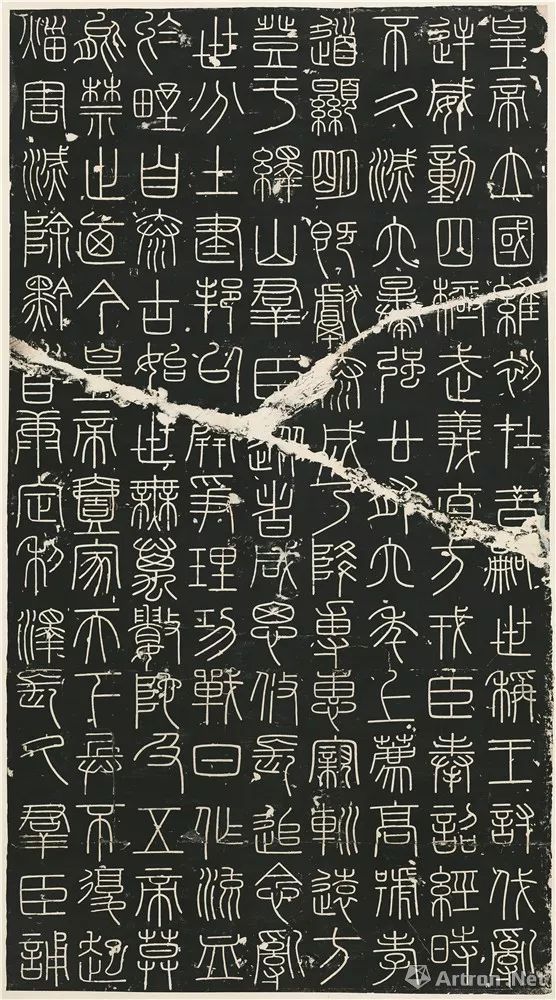 皇帝立國維初在昔嗣世稱王討伐亂
逆威動四極武義直方戎臣奉詔經時
不久滅六暴強廿有六年上薦高號孝
道顯明既獻泰成乃降尃惠寴巡遠方
登于繹山羣臣從者咸思攸長追念亂
世分土建邦以開爭理功戰日作流血
於野自泰古始世無萬數陀及五帝莫
能禁止廼今皇帝壹家天下兵不復起
烖害滅除黔首康定利澤長久羣臣誦
Artron.Net